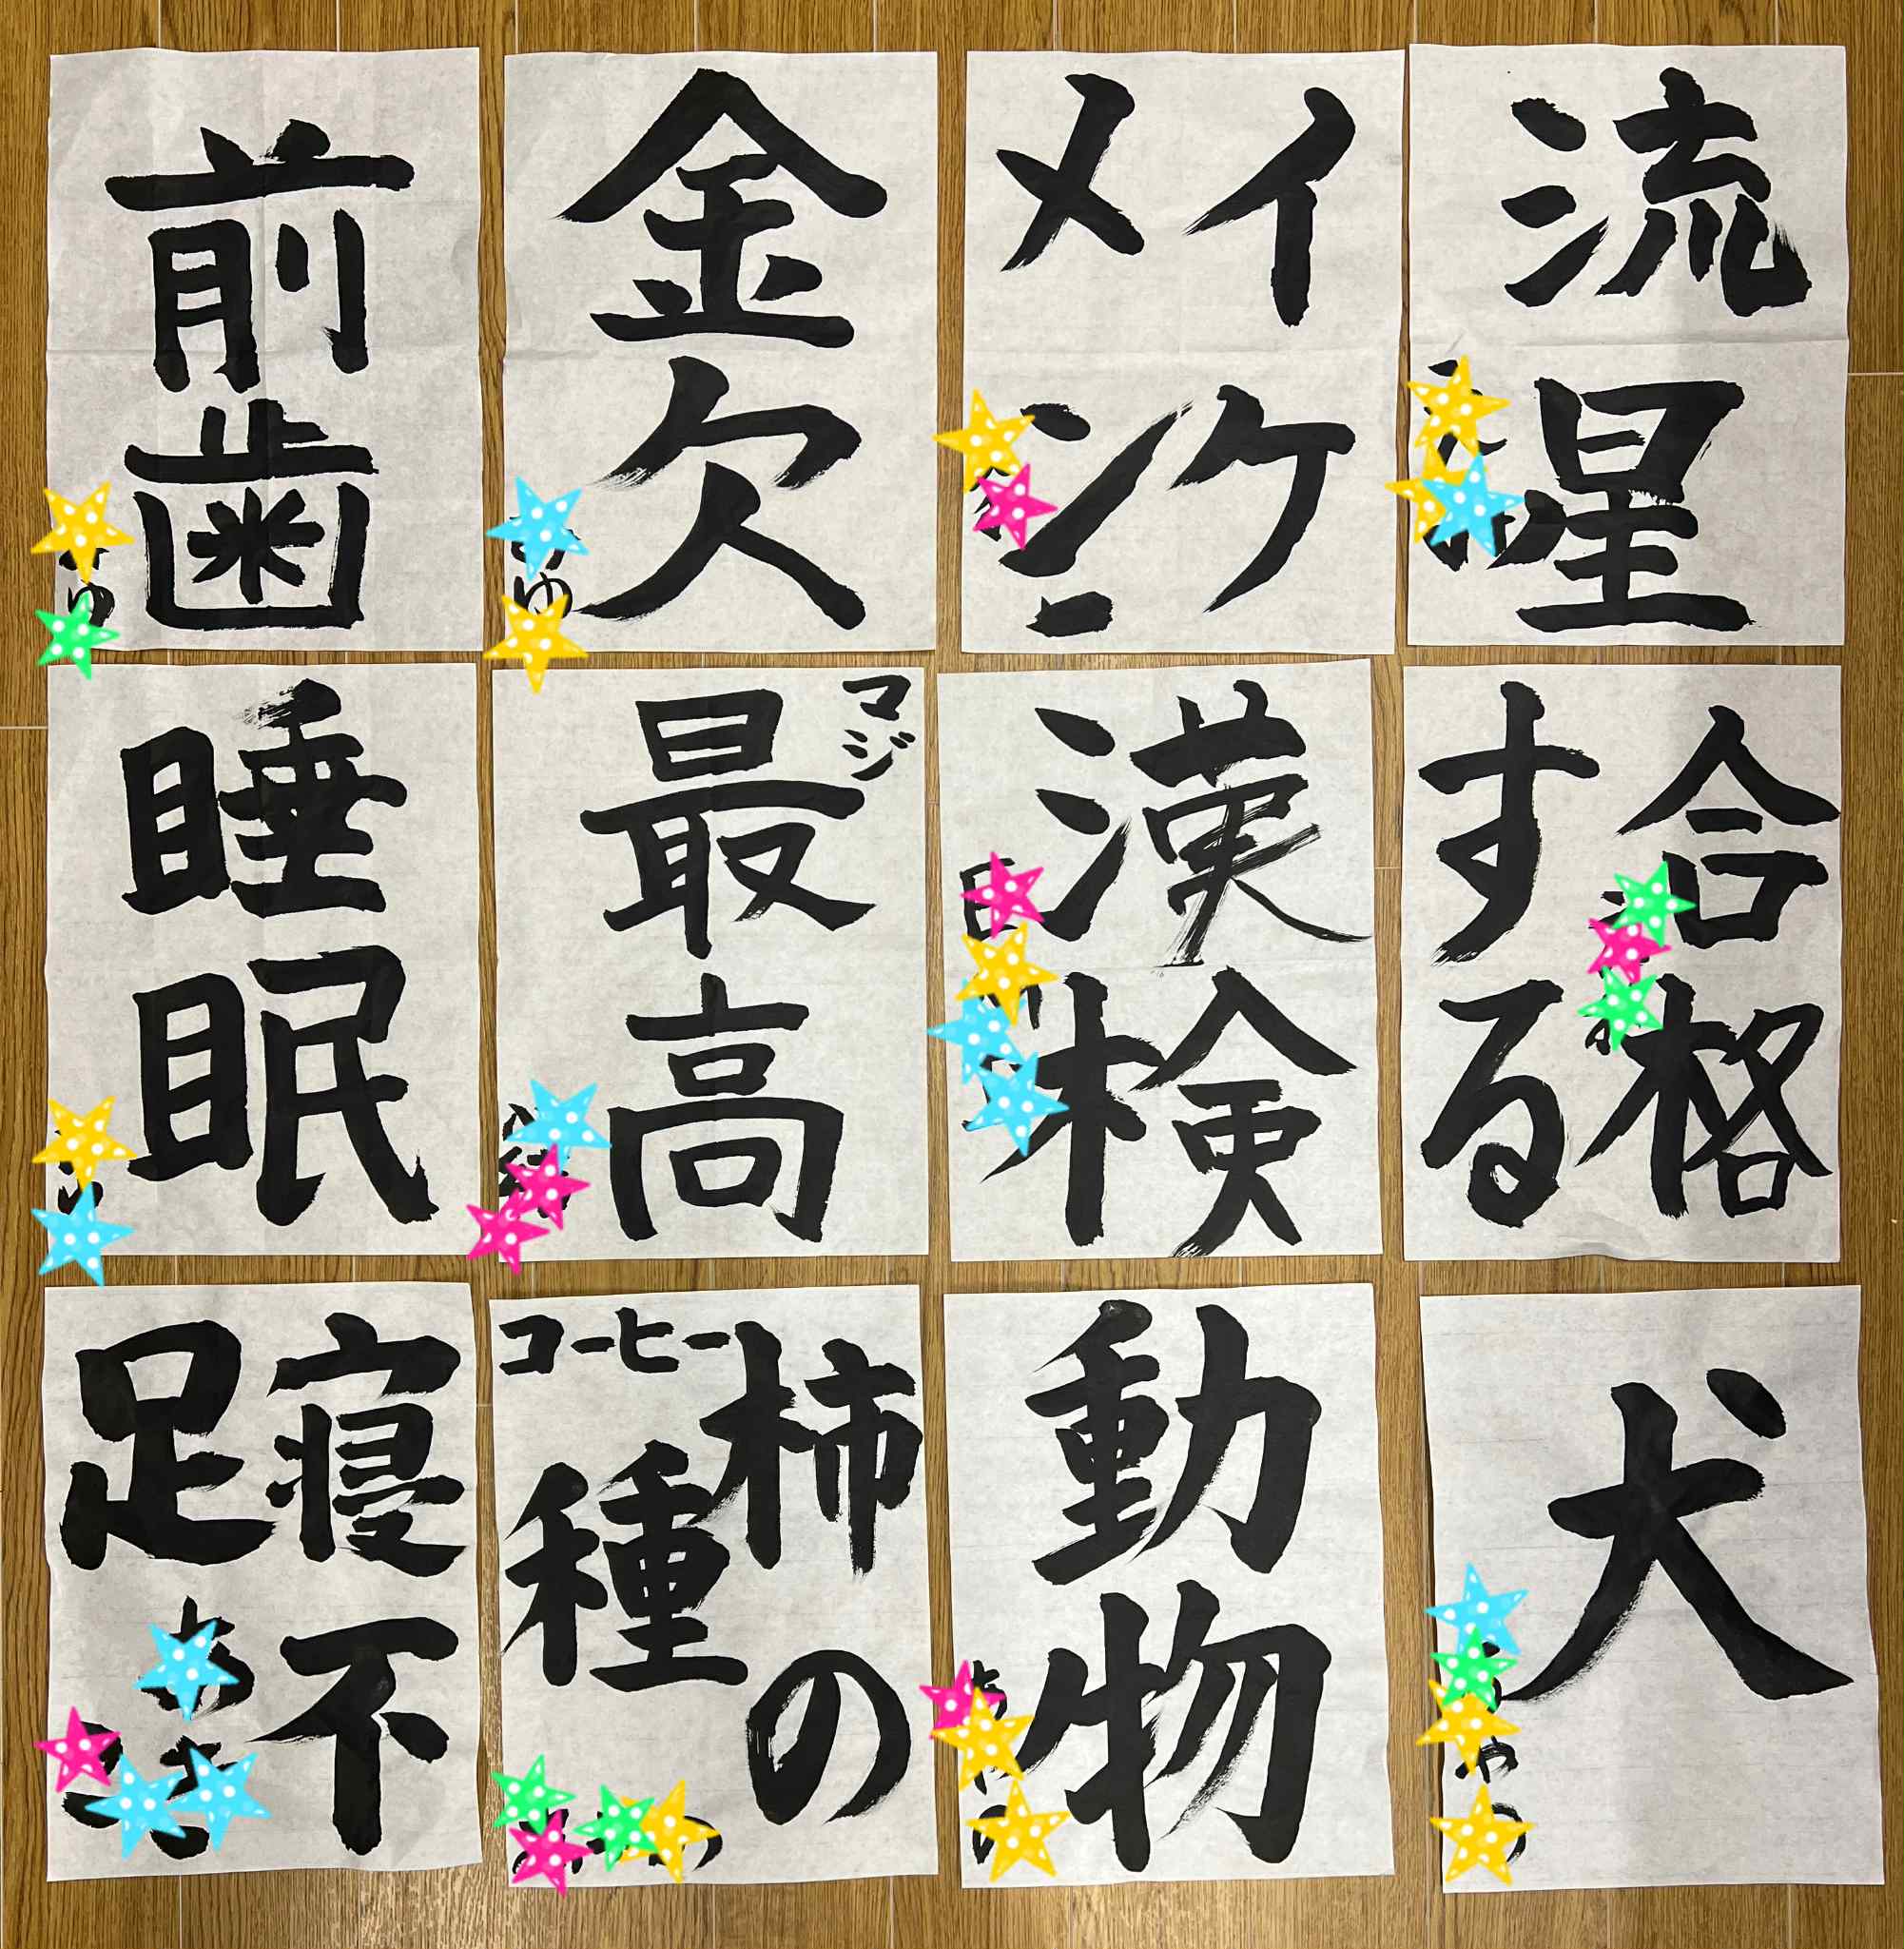 前歯
金欠
イケ
メン
流星
睡眠
マジ
最高
漢検
合格
する
寝不
足
柿の
種
コーヒー
動物
犬